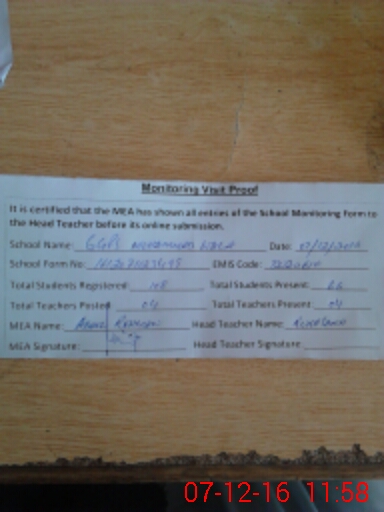 Monitoring Visit Proof
It is certified that the MEA has shown all entries of the School Monitoring Form to
the Head Teacher before its online submission.
School Name: GGPS Date: 07/12/2016
School Form No: EMIS Code:
Total Students Registered: 108 Total Students Present: 66
Total Teachers Posted: 04 Total Teachers Present: 04
MEA Name: Head Teacher Name:
MEA Signature: Head Teacher Signature:
07-12-16 11:58